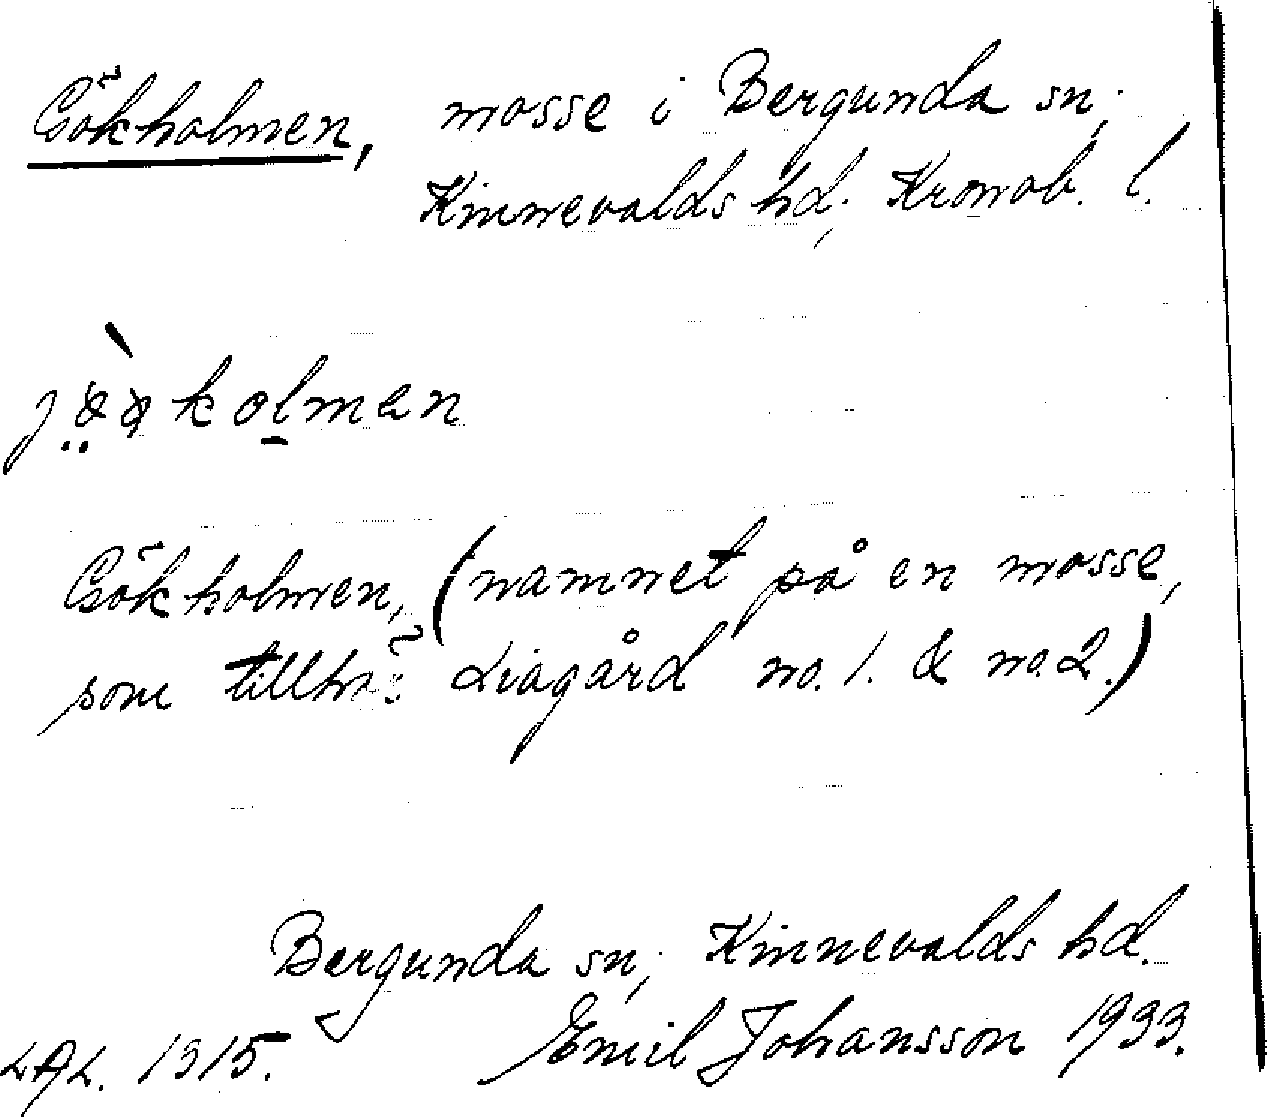 Gökholmen, mosse i Bergunda sn,
Kinnevalds hd, Kronob. l.
jø̤̀økolman
Gökholmen, (namnet på en mosse,
som tillhör Liagård no. 1. & no. 2.)
Bergunda sn, Kinnevalds hd.
LAL. 1915. Emil Johansson 1933.